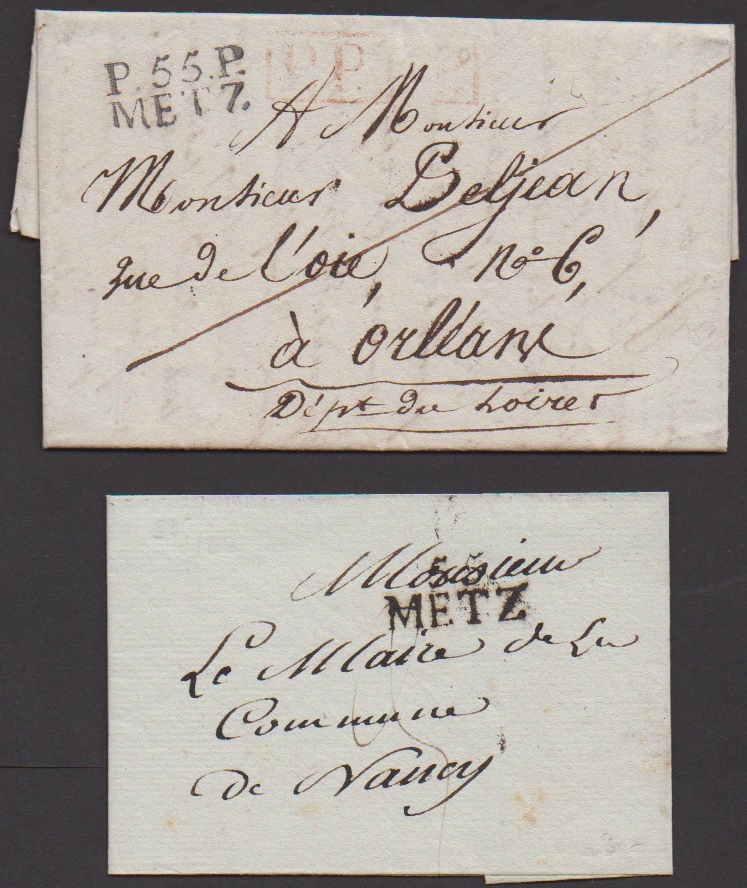 P.55.P.
METZ.
P.P.
A Monsieur
Monsieur Beljean,
rue de l'oie, no 6,
à orléans
Dépt du Loiret
Monsieur
55
METZ
Le Maire de La
Commune
de Nancy